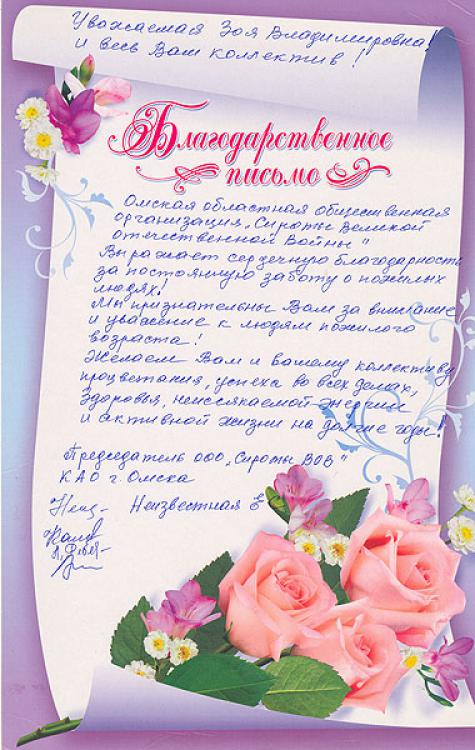 Уважаемая Зоя Владимировна!
и весь Вам коллектив!
Благодарственное
письмо
Омская областная общественная
организация „Сироты Великой
отечественной Войны"
Выражает сердечную благодарность
за постоянную заботу о пожилых
людях!
Мы признательны Вам за внимание
и уважение к людям пожилого
возраста!
Желаем Вам и Вашему коллективу
процветания, успеха во всех делах,
Здоровья, неиссякаемой энергии
и активной жизни на долгие годы!
Председатель ооо „Сироты ВОВ"
КАО г. Омска
Неизвестная Е